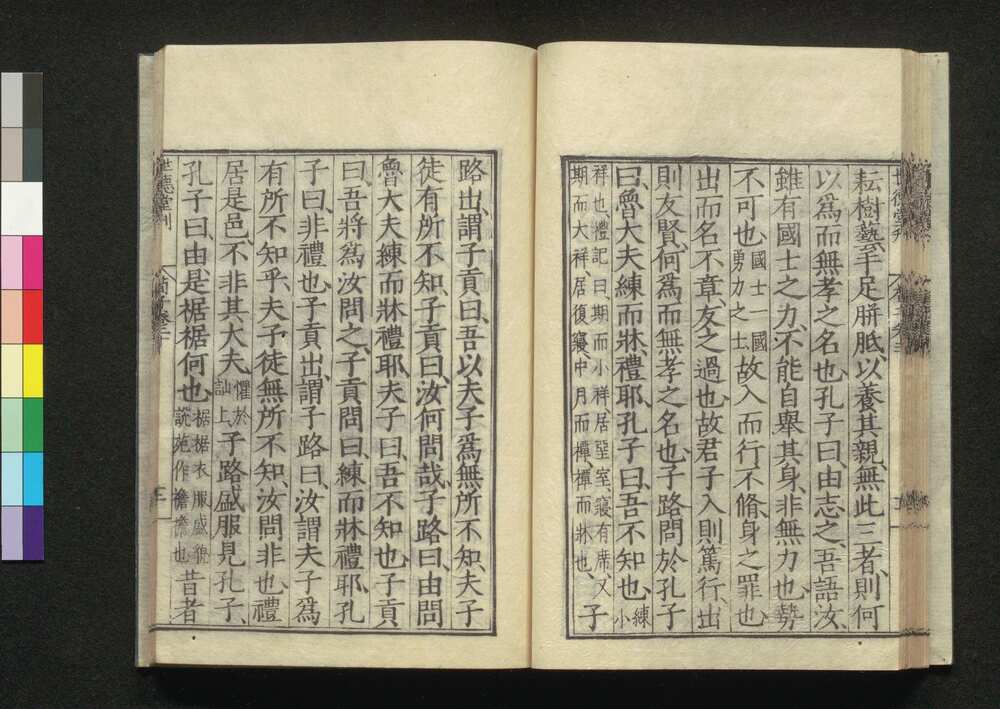 耘樹藝手足胼胝以養其親無此三者則何
以爲而無孝之名也孔子曰由志之吾語汝
雖有國士之力不能自舉其身非無力也勢
不可也國士一國勇力之士故入而行不脩身之罪也
出而名不章友之過也故君子入則篤行出
則友賢何爲而無孝之名也子路問於孔子
曰魯大夫練而牀禮耶孔子曰吾不知也練小
祥也禮記曰期而小祥居堊室寢有席又期而大祥居復寢中月而禫禫而牀也子
路出謂子貢曰吾以夫子爲無所不知夫子
徒有所不知子貢曰汝何問哉子路曰由問
魯大夫練而牀禮耶夫子曰吾不知也子貢
曰吾將爲汝問之子貢問曰練而牀禮耶孔
子曰非禮也子貢出謂子路曰汝謂夫子爲
有所不知乎夫子徒無所不知汝問非也禮
居是邑不非其大夫懼於訕上子路盛服見孔子
孔子曰由是裾裾何也裾裾衣服盛貌說苑作襜襜也昔者
世德堂刊